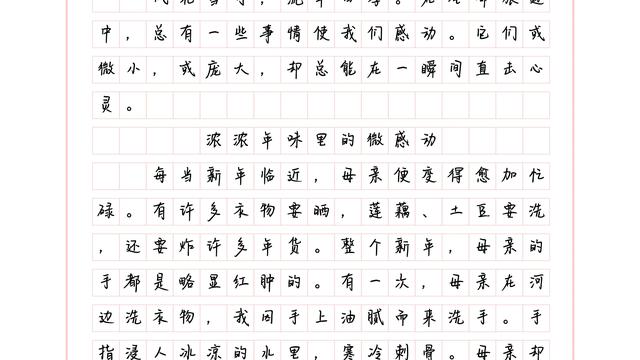 中，总有一些事情使我们感动。它们或
微小，或庞大，却总能在一瞬间直击心
灵。
浓浓年味里的微感动
每当新年临近，母亲便变得愈加忙
碌。有许多衣物要晒，莲藕、土豆要洗
，还要炸许多年货。整个新年，母亲的
手都是略显红肿的。有一次，母亲在河
边洗衣物，我因手上油腻而来洗手。手
指浸入冰凉的水里，寒冷刺骨。母亲却